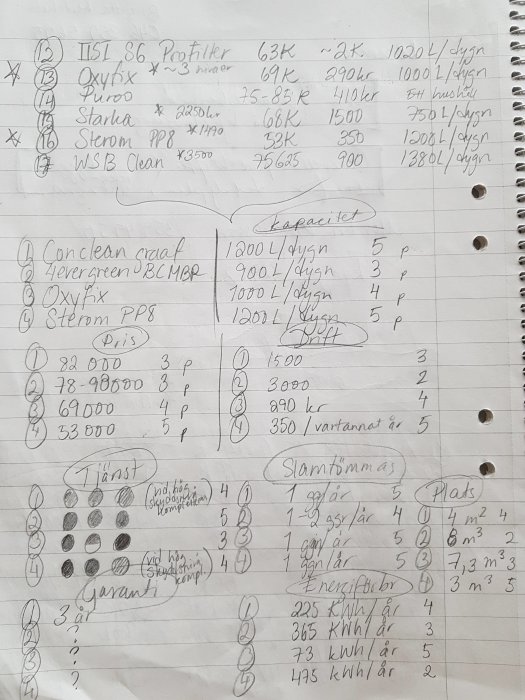 12 IISI S6 Profiller 63K ~2K. 1020L/dygn
13 Oxyfix * ~3 69K 290kr 1000L/dygn
14 Puroo 75-85K 410kr Ett hushåll
15 Starka * 2250kr 68K 1500 750L/dygn
16 Sterom PP8 *1490 53K 350 1208L/dygn
17 WSB Clean *3500 75625 900 1380L/dygn
Kapacitet
1 Conclean graaf 1200L/dygn 5 p
2 4evergreen BCMBR 900L/dygn 3 p
3 Oxyfix 1000L/dygn 4 p
4 Sterom PP8 1200L/dygn 5 p
Pris Drift
1 82 000 3 p 1 1500 3
2 78-98000 3 p 2 3000 2
3 69000 4 p 3 290 kr 4
4 53 000 5 p 4 350/vartannat år 5
Tjänst Slamtömmas Plats
1 (vid hög skyddsnivå 4 1 1 gg/år 5
2 5 2 1-2 ggr/år 4 1 4 m² 4
3 3 3 1 ggn/år 5 2 8 m³ 2
4 (vid hög skyddsnivå kompl. 4 4 1 ggn/år 5 3 7,3 m³ 3
Garanti Energiförbr 4 3 m³ 5
1 3 år 1 225 KWh/år 4
2 ? 2 365 KWh/år 3
3 ? 3 73 kWh/år 5
4 ? 4 475 kWh/år 2